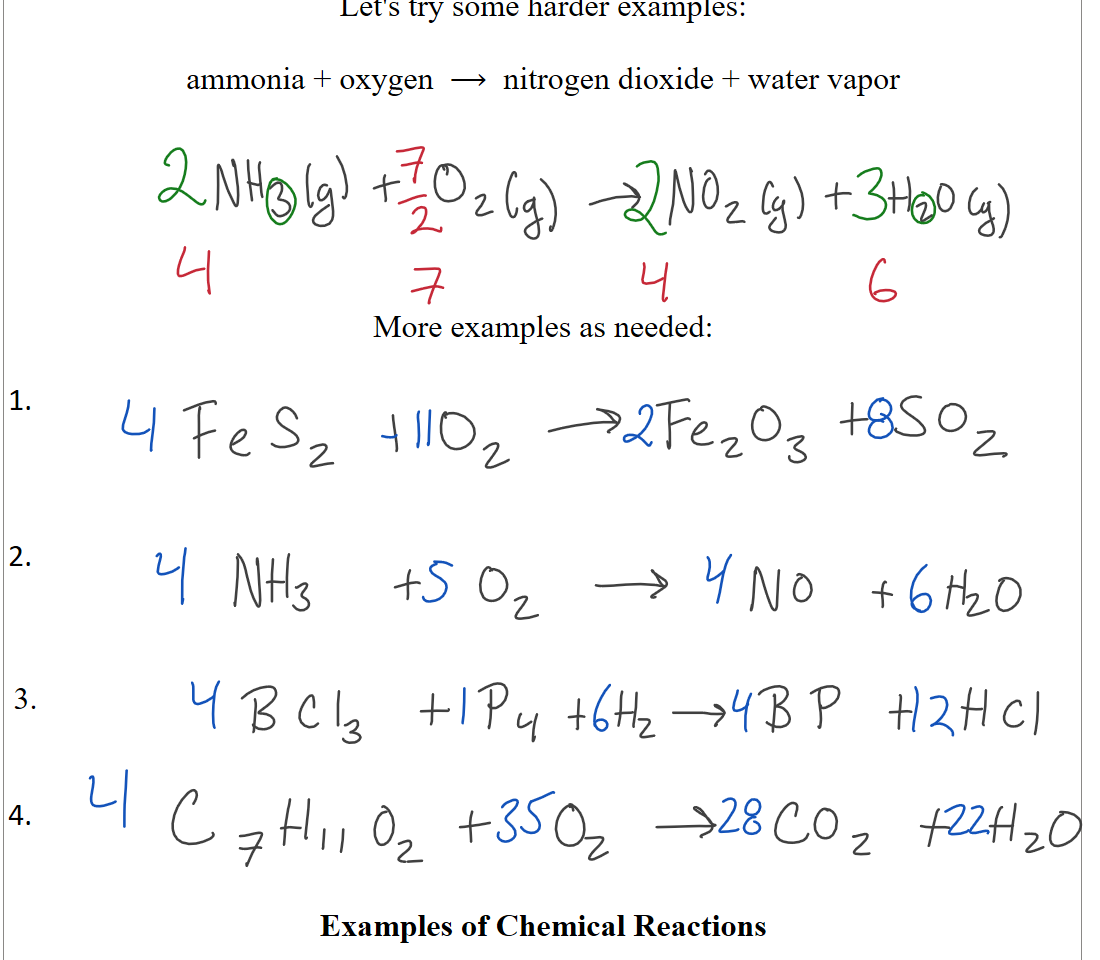 Let's try some harder examples:
ammonia + oxygen ⟶ nitrogen dioxide + water vapor
2 NH₃(g) + 7/2 O₂(g) → 2NO₂(g) + 3H₂O(g)
4 7 4 6
More examples as needed:
1. 4 FeS₂ + 11O₂ → 2Fe₂O₃ + 8SO₂
2. 4 NH₃ + 5 O₂ → 4 NO + 6 H₂O
3. 4 BCl₃ + 1P₄ + 6H₂ → 4BP + 12HCl
4. 4 C₇H₁₁O₂ + 35O₂ → 28CO₂ + 22H₂O
Examples of Chemical Reactions